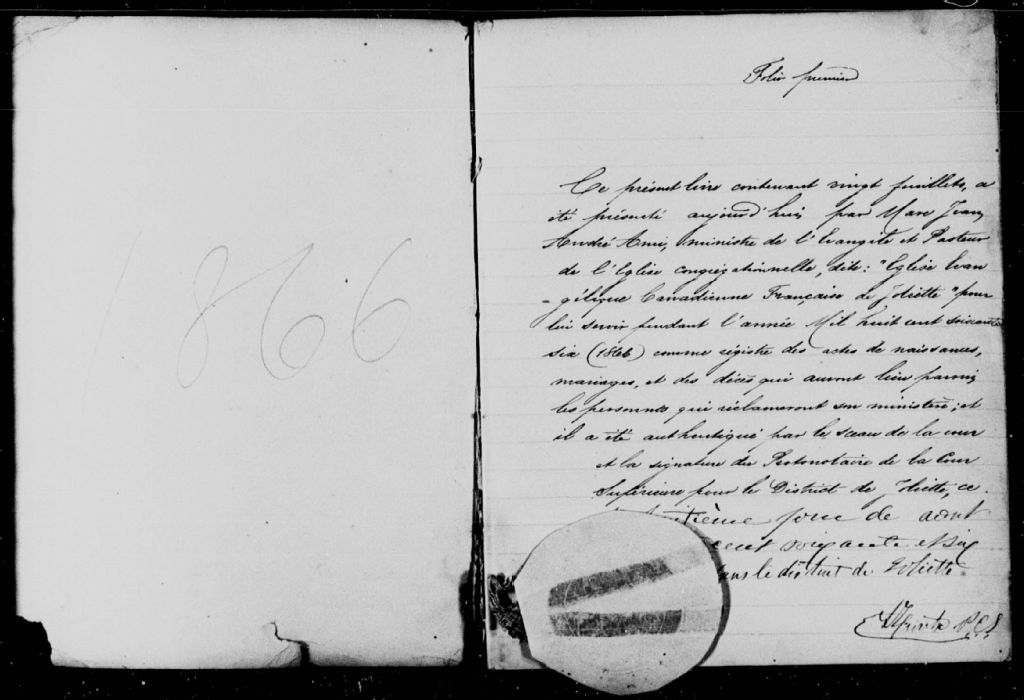 1866
Folio premier
Ce présent livre contenant vingt feuillets, a
été présenté aujourd'hui par Marc Jean
André Ami, ministre de l'Evangile et Pasteur
de l'Eglise congrégationnelle, dite: "Eglise Evan
-gélique Canadienne Française de Joliette" pour
lui servir pendant l'année Mil huit cent soixante
six (1866) comme régistre des actes de naissances,
mariages, et des décès qui auront lieu parmi
les personnes qui réclameront son ministère; et
il a été authentiqué par le sceau de la cour
et la signature du Protonotaire de la Cour
Supérieure pour le District de Joliette, ce
jour de août
cent soixante et six
dans le district de Joliette
P.C.S.